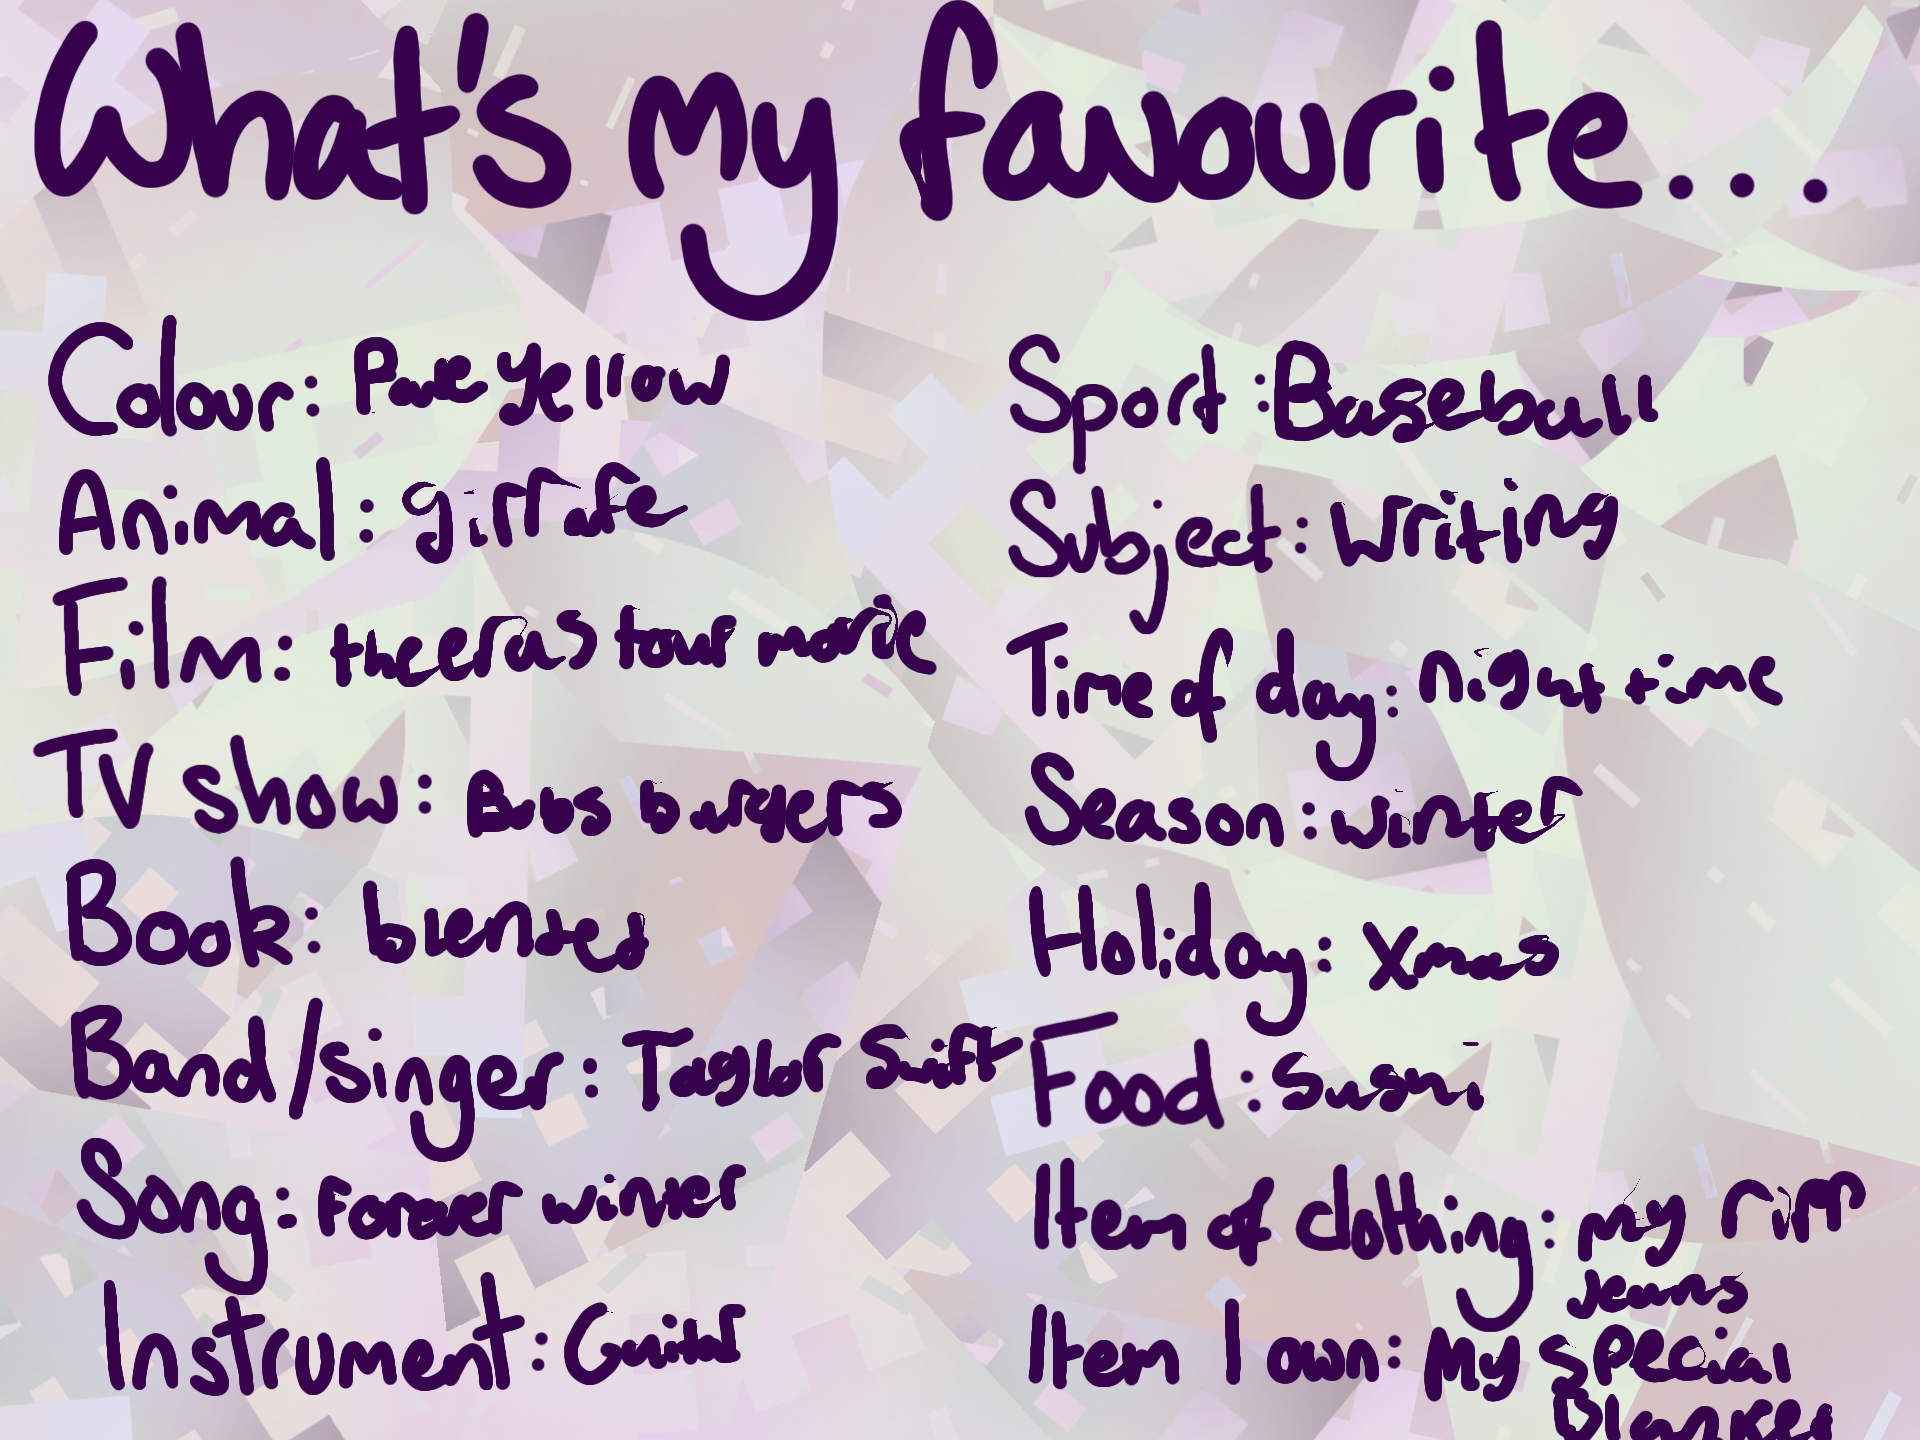 What's my favourite...
Colour: Pale Yellow
Animal: girrafe
Film: the eras tour movie
TV show: Bobs burgers
Book: blended
Band/singer: Taylor Swift
Song: Forever winter
Instrument: Guitar
Sport: Baseball
Subject: Writing
Time of day: night time
Season: winter
Holiday: Xmas
Food: Sushi
Item of clothing: my ripp
jeans
Item I own: My special
Blanket